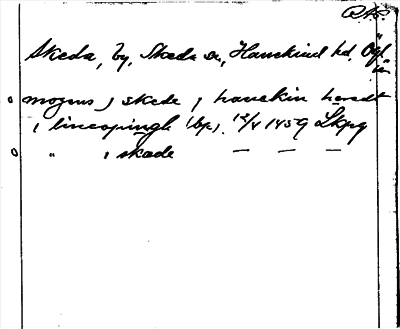 R.A.P.
Skeda, by, Skeda sn, Hanekind hd. Ögl
än
o mogens j skede j hanekin hæredt
j lincopingh (bp). 12/4 1459 Lkpg
o " j skade — — —